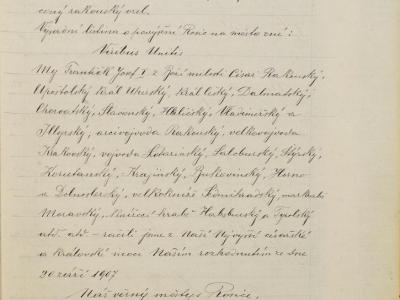 černý rakouský orel.
Vlastní listina o povýšení Rosic na město zní:
Viribus Unitis
My František Josef I. z Boží milosti Císař Rakouský,
Apoštolský Král Uherský, Král Český, Dalmatský,
Chorvatský, Slavonský, Haličský, Vladiměřský a
Illyrský, arcivojvoda Rakouský, velkovojvoda
Krakovský, vojvoda Lotarinský, Salcburský, Štýrský,
Korutanský, Krajinský, Bukovinský, Horno
a Dolnoslezský, velkokníže Sedmihradský, markrabě
Moravský, kníže. hrabě Habsburský a Tyrolský
atd. atd. - ráčili jsme z Naší Nejvyšší císařské
a královské moci Naším rozhodnutím ze dne
20 září 1907
Náš věrný městys Rosice,